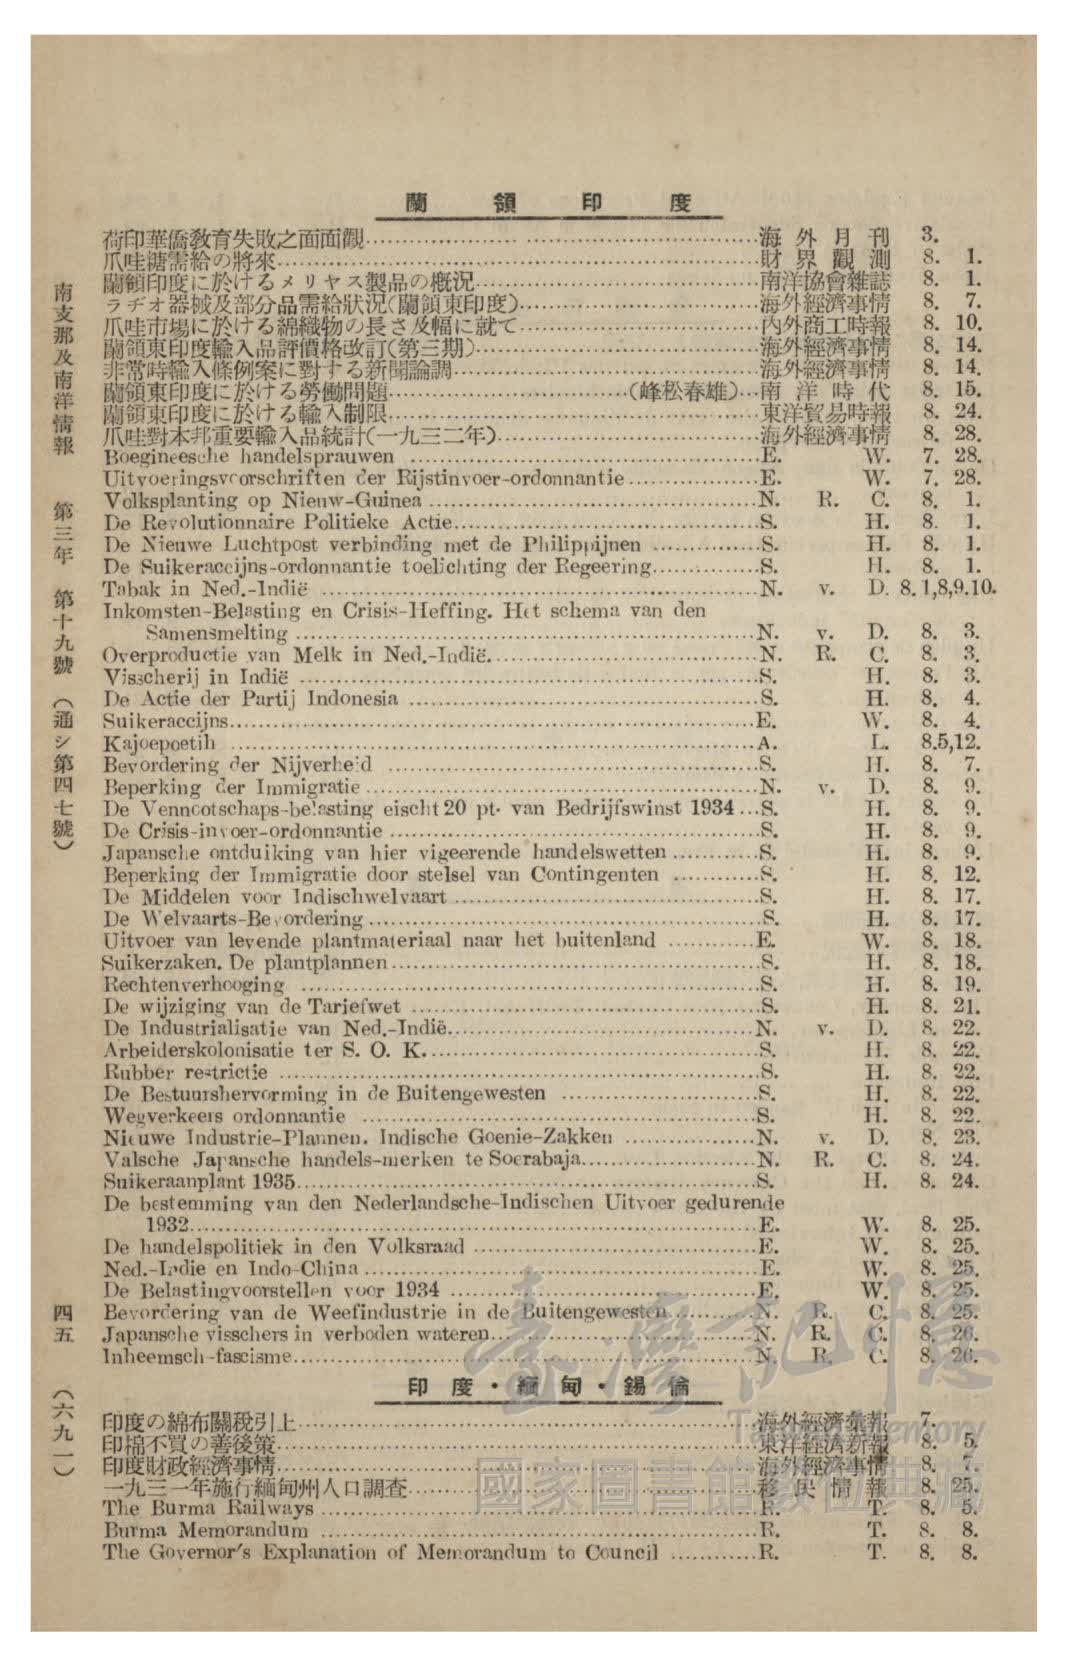 蘭領印度
荷印華僑教育失敗之面面觀……海外月刊 3.
爪哇糖需給の將來……財界觀測 8. 1.
蘭領印度に於けるメリヤス製品の概況……南洋協會雜誌 8. 1.
ラヂオ器械及部分品需給狀況(蘭領東印度)……海外經濟事情 8. 7.
爪哇市場に於ける綿織物の長さ及幅に就て……內外商工時報 8. 10.
蘭領東印度輸入品評價格改訂(第三期)……海外經濟事情 8. 14.
非常時輸入條例案に對する新聞論調……海外經濟事情 8. 14.
蘭領東印度に於ける勞働問題……(峰松春雄)…南洋時代 8. 15.
蘭領東印度に於ける輸入制限……東洋貿易時報 8. 24.
爪哇對本邦重要輸入品統計(一九三二年)……海外經濟事情 8. 28.
Boegineesche handelsprauwen ……E. W. 7. 28.
Uitvoeringsvoorschriften der Rijstinvoer-ordonnantie……E. W. 7. 28.
Volksplanting op Nieuw-Guinea……N. R. C. 8. 1.
De Revolutionnaire Politieke Actie……S. H. 8. 1.
De Nieuwe Luchtpost verbinding met de Philippijnen ……S. H. 8. 1.
De Suikeraccijns-ordonnantie toelichting der Regeering……S. H. 8. 1.
Tabak in Ned.-Indië ……N. v. D. 8. 1,8,9.10.
Inkomsten-Belasting en Crisis-Heffing. Het schema van den
Samensmelting ……N. v. D. 8. 3.
Overproductie van Melk in Ned.-Indië……N. R. C. 8. 3.
Visscherij in Indië ……S. H. 8. 3.
De Actie der Partij Indonesia ……S. H. 8. 4.
Suikeraccijns……E. W. 8. 4.
Kajoepoetih ……A. L. 8.5,12.
Bevordering der Nijverheid ……S. H. 8. 7.
Beperking der Immigratie……N. v. D. 8. 9.
De Venncotschaps-belasting eischt 20 pt. van Bedrijfswinst 1934…S. H. 8. 9.
De Crisis-invoer-ordonnantie ……S. H. 8. 9.
Japansche ontduiking van hier vigeerende handelswetten ……S. H. 8. 9.
Beperking der Immigratie door stelsel van Contingenten ……S. H. 8. 12.
De Middelen voor Indischwelvaart……S. H. 8. 17.
De Welvaarts-Bevordering……S. H. 8. 17.
Uitvoer van levende plantmateriaal naar het buitenland ……E. W. 8. 18.
Suikerzaken. De plantplannen……S. H. 8. 18.
Rechtenverhooging ……S. H. 8. 19.
De wijziging van de Tariefwet ……S. H. 8. 21.
De Industrialisatie van Ned.-Indië……N. v. D. 8. 22.
Arbeiderskolonisatie ter S. O. K.……S. H. 8. 22.
Rubber restrictie ……S. H. 8. 22.
De Bestuurshervorming in de Buitengewesten ……S. H. 8. 22.
Wegverkeers ordonnantie ……S. H. 8. 22.
Nieuwe Industrie-Plannen. Indische Goenie-Zakken ……N. v. D. 8. 23.
Valsche Japansche handels-merken te Soerabaja……N. R. C. 8. 24.
Suikeraanplant 1935……S. H. 8. 24.
De bestemming van den Nederlandsche-Indischen Uitvoer gedurende
1932……E. W. 8. 25.
De handelspolitiek in den Volksraad ……E. W. 8. 25.
Ned.-Indie en Indo-China……E. W. 8. 25.
De Belastingvoorstellen voor 1934 ……E. W. 8. 25.
Bevordering van de Weefindustrie in de Buitengewesten……N. R. C. 8. 25.
Japansche visschers in verboden wateren……N. R. C. 8. 26.
Inheemsch-fascisme……N. R. C. 8. 26.
印度・緬甸・錫倫
印度の綿布關稅引上……海外經濟彙報 7.
印棉不買の善後策……東洋經濟新報 8. 5.
印度財政經濟事情……海外經濟事情 8. 7.
一九三一年施行緬甸州人口調查……移民情報 8. 25.
The Burma Railways ……R. T. 8. 5.
Burma Memorandum ……R. T. 8. 8.
The Governor's Explanation of Memorandum to Council ……R. T. 8. 8.
南支那及南洋情報 第三年 第十九號 (通シ第四七號)
四五 (六九一)
臺灣記憶
Taiwan Memory
國家圖書館數位典藏